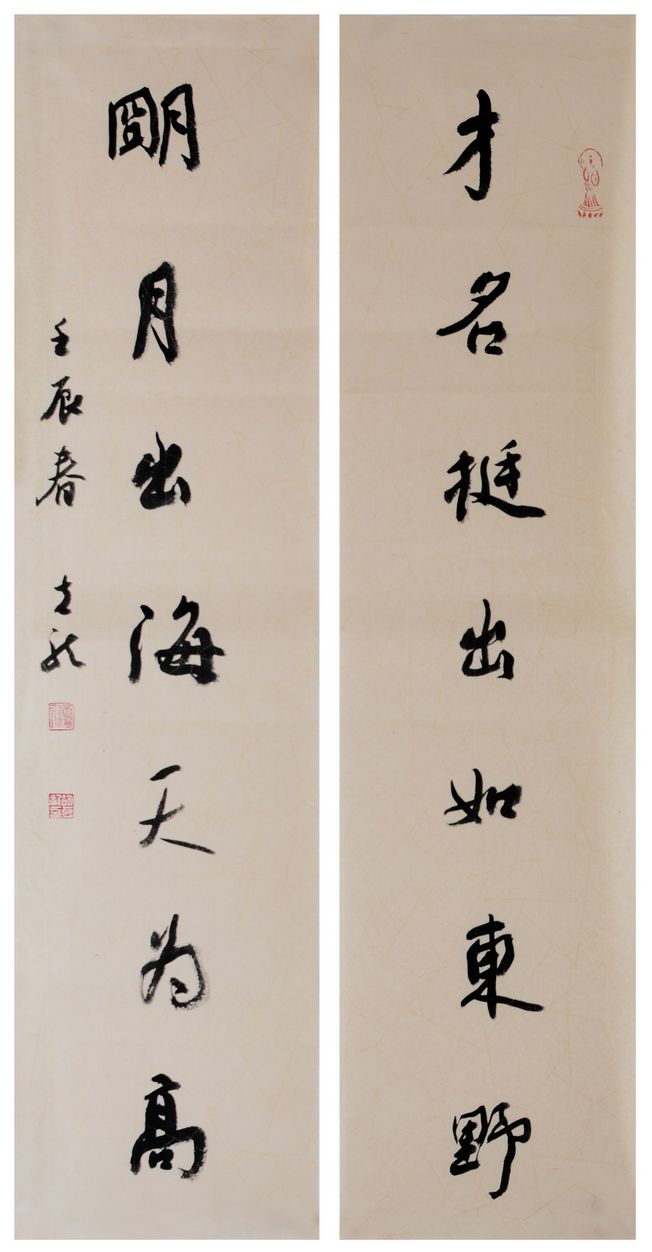 才名挺出如東野
朙月出海天为高
壬辰春